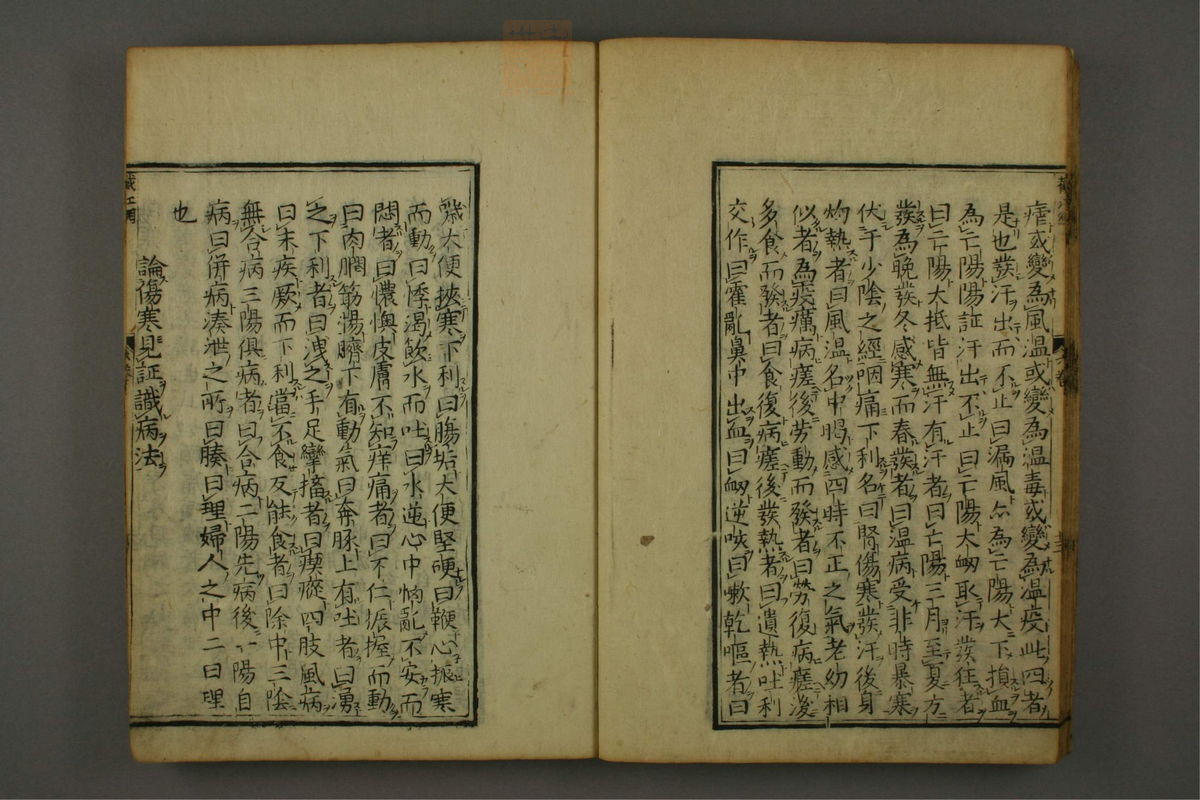 瘧或變為風溫或變為溫毒或變為溫疫此四者
是也發汗出而不止曰漏風亦為亡陽大下損血
為亡陽陽証汗出不止曰亡陽大衂取汗發狂者
曰亡陽大抵皆無汗有汗者曰亡陽三月至夏方
發為晚發冬感寒而春發者曰溫病受非時暴寒
伏于少陰之經咽痛下利名曰腎傷寒發汗後身
灼熱者曰風溫名中暍感四時不正之氣老幼相
似者為疫癘病瘥後劳動而發者曰勞復病瘥後
多食而發者曰食復病瘥後發熱者曰遺熱吐利
交作曰霍亂鼻中出血曰衂逆咳曰嗽乾嘔者曰
大便挾寒下利曰腸垢大便堅硬曰鞕心振寒
而動曰悸渴飲水而吐曰水逆心中惱亂不安而
悶者曰懊憹皮膚不知痒痛者曰不仁振握而動
曰肉瞤筋惕臍下有動氣曰奔豚上有吐者曰湧
之下利者曰洩之手足攣搐者曰瘈瘲四肢風病
曰末疾厥而下利當不食反能食者曰除中三陰
無合病三陽俱病者曰合病二陽先病後一陽自
病曰併病湊泄之所曰腠曰理婦人之中二曰理
也
論傷寒見証識病法